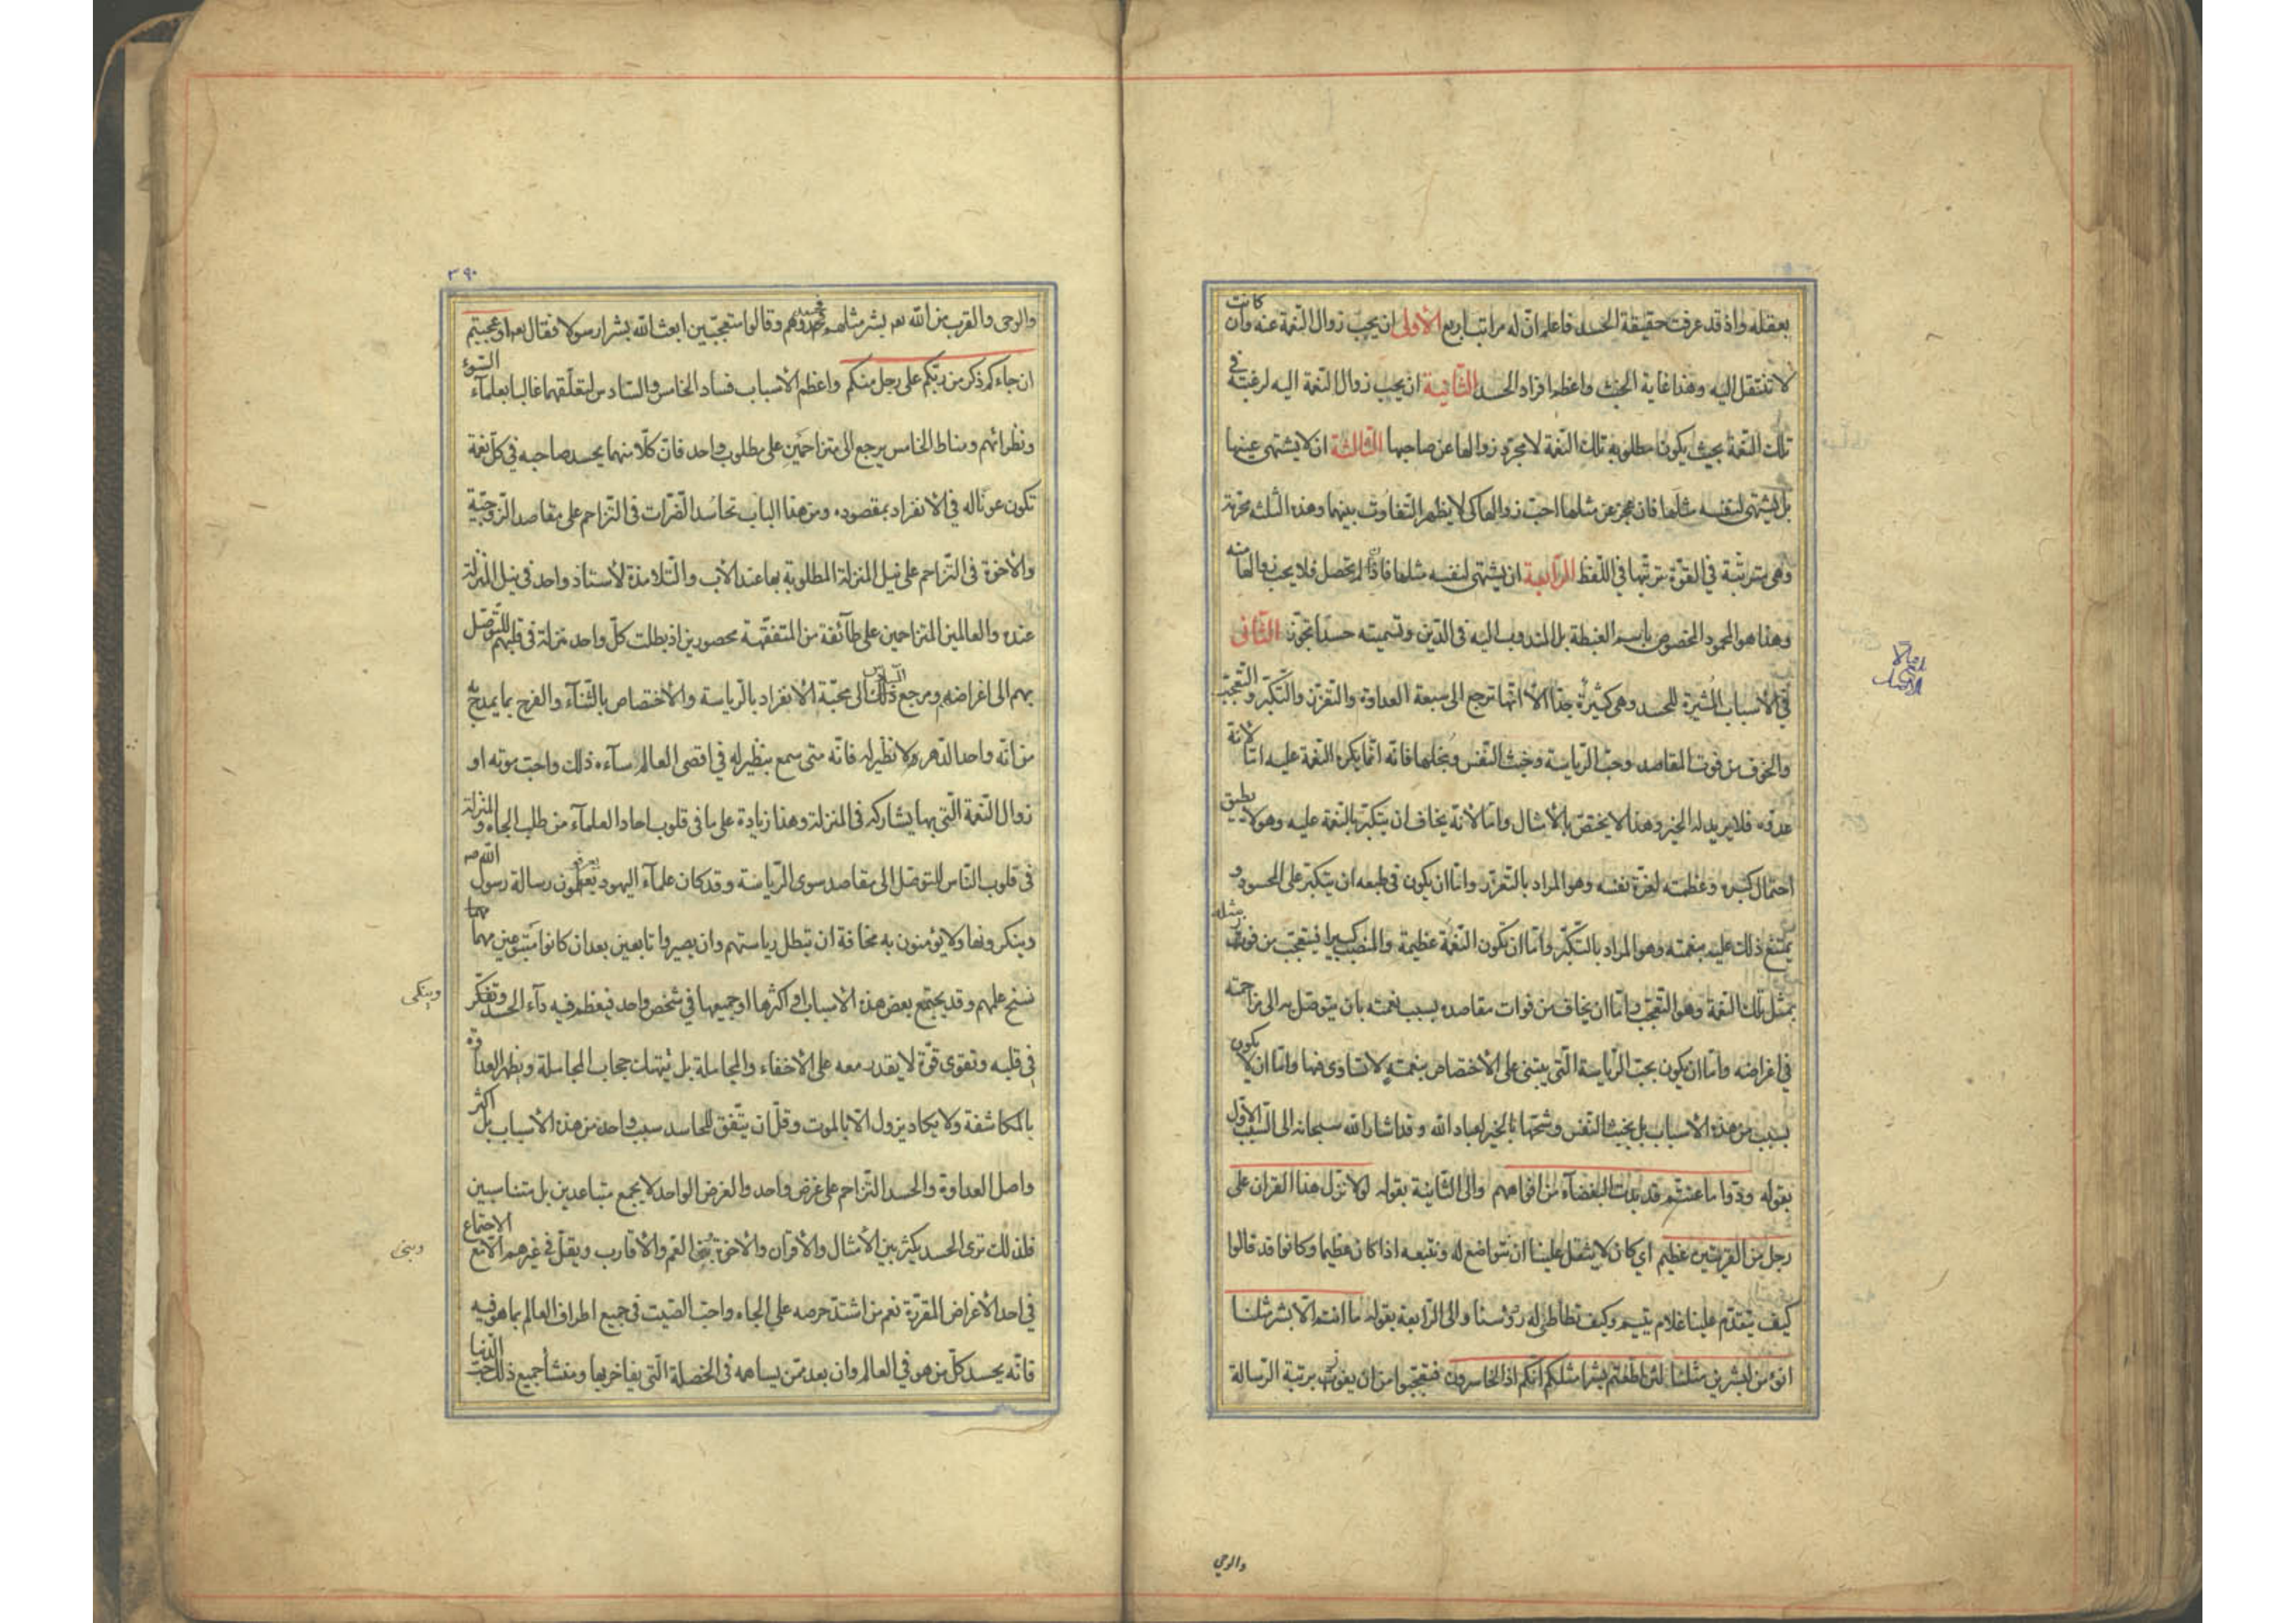 بعقله واذ قد عرفت حقيقة الحسد فاعلم ان له مراتب اربع الأولى ان يحب زوال النعمة عنه وان كانت
لا تنتقل اليه وهذا غاية الخبث واعظم افراد الحسد الثانية ان يحب زوال النعمة اليه لرغبته في
تلك النعمة بحيث يكون مطلوبه تلك النعمة لا مجرد زوالها عن صاحبها الثالثة ان لا يشتهى عينها
بل يشتهى لنفسه مثلها فان عجز عن مثلها احب زوالها كى لا يظهر التفاوت بينهما وهذه الثلثة محرمة
وهى مترتبة في القوة ترتبها في اللفظ الرابعة ان يشتهى لنفسه مثلها فاذا لم يحصل فلا يحب زوالها منه
وهذا هو المحمود المخصوص باسم الغبطة بل المندوب اليه في الدين وتسميته حسدا تجوز الثانى
في الأسباب المثيرة للحسد وهى كثيرة جدا الا انها ترجع الى سبعة العداوة والتعزز والتكبر والتعجب
والخوف من فوت المقاصد وحب الرياسة وخبث النفس وبخلها فانه انما يكره النعمة عليه اما لانه
عدوه فلا يريد له الخير وهذا لا يختص بالأمثال واما لأنه يخاف ان يتكبر بالنعمة عليه وهو لا يطيق
احتمال كبره وعظمته لعزة نفسه وهو المراد بالتعزز واما ان يكون في طبعه ان يتكبر على المحسود و
يمتنع ذلك عليه بنعمته وهو المراد بالتكبر واما ان تكون النعمة عظيمة والمنصب كبيرا فيتعجب من فوز مثله
بمثل تلك النعمة وهو التعجب واما ان يخاف من فوات مقاصده بسبب نعمته بان يتوصل به الى مزاحمته
في اغراضه واما ان يكون بحب الرياسة التى يبتنى على الأختصاص بنعمته لا تساوى فيها واما ان لا يكون
بسبب من هذه الأسباب بل بخبث النفس وشحها بالخير لعباد الله وقد اشار الله سبحانه الى السبب الأول
بقوله ودوا ما عنتم قد بدت البغضآء من افواههم والى الثانية بقوله لولا نزل هذا القران على
رجل من القريتين عظيم اي كان لا يثقل علينا ان نتواضع له ونتبعه اذا كان عظيما وكانوا قد قالوا
كيف يتقدم علينا غلام يتيم وكيف نطاطى له رؤسنا والى الرابعة بقوله ما انتم الا بشر مثلنا
انؤمن لبشرين مثلنا لئن اطعتم بشرا مثلكم انكم اذا لخاسرون فتعجبوا من ان يفوز برتبة الرسالة
والوحي
٣٩٠
والوحى والقرب من الله تعـ بشر مثلهم فحسدوهم وقالوا متعجبين ابعث الله بشرا رسولا فقال تعـ اوعجبتم
ان جاءكم ذكر من ربكم على رجل منكم واعظم الأسباب فسادا الخامس والسادس لتعلقهما غالبا بعلمآء السوء
ونظرائهم ومناط الخامس يرجع الى متزاحمين على مطلوب واحد فان كلا منهما يحسد صاحبه في كل نعمة
تكون عونا له في الانفراد بمقصوده ومن هذا الباب تحاسد الضرات في التزاحم على مقاصد الزوجية
والأخوة في التزاحم على نيل المنزلة المطلوبة بها عند الأب والتلامذة لأستاذ واحد في نيل المنزلة
عنده والعالمين المتزاحمين على طآئفة من المتفقهة محصورين اذ يطلب كل واحد منزلة في قلبهم للتوصل
بهم الى اغراضه ومرجع السادس الى محبة الانفراد بالرياسة والأختصاص بالثنآء والفرح بما يمدح به
من انه واحد الدهر ولا نظير له فانه متى سمع بنظير له في اقصى العالم سآءه ذلك واحب موته او
زوال النعمة التى بها يشاركه في المنزلة وهذا زيادة على ما في قلوب احاد العلمآء من طلب الجاه والمنزلة
في قلوب الناس للتوصل الى مقاصد سوى الرياسة وقد كان علمآء اليهود يعرفون رسالة رسول الله ص
وينكرونها ولا يؤمنون به مخافة ان تبطل رياستهم وان يصيروا تابعين بعد ان كانوا متبوعين مهما
نسخ علمهم وقد يجتمع بعض هذه الأسباب او اكثرها او جميعها في شخص واحد فيعظم فيه دآء الحسد ويتمكن
في قلبه وتقوى قوة لا يقدر معه على الأخفاء والمجاملة بل ينهتك حجاب المجاملة ويظهر العداوة
بالمكاشفة ولا يكاد يزول الا بالموت وقل ان يتفق للحاسد سبب واحد من هذه الأسباب بل اكثر
واصل العداوة والحسد التزاحم على غرض واحد والغرض الواحد لا يجمع متباعدين بل متناسبين
فلذلك ترى الحسد يكثر بين الأمثال والأقران والأخوة وبنى العم والأقارب ويقل في غيرهم الا مع الاجتماع
في احد الأغراض المقررة نعم من اشتد حرصه على الجاه واحب الصيت في جميع اطراف العالم بما هو فيه
فانه يحسد كل من هو في العالم وان بعد ممن يساهمه في الخصلة التى يفاخر بها ومنشأ جميع ذلك حب الدنيا